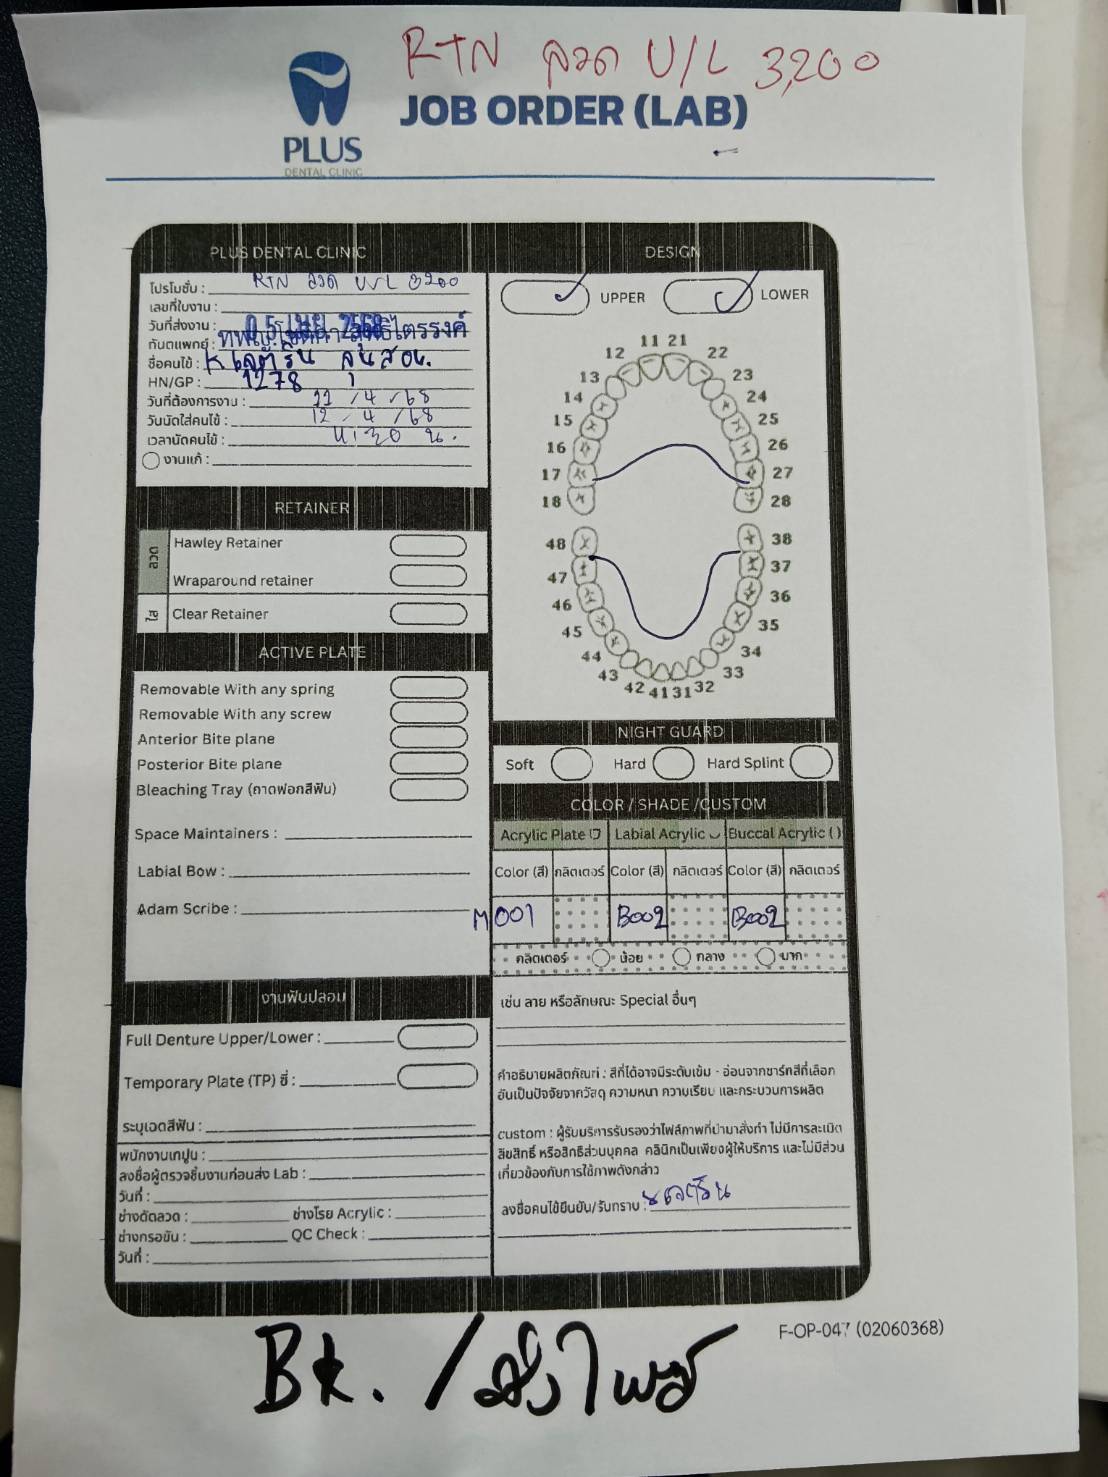 RTN ลวด U/L 3,200
JOB ORDER (LAB)
PLUS
DENTAL CLINIC
PLUS DENTAL CLINIC
โปรโมชั่น : RTN ลวด U/L 3200
เลขที่ใบงาน :
วันที่ส่งงาน : 05 เม.ย. 2568
ทันตแพทย์ :
ชื่อคนไข้ :
HN/GP : 1278
วันที่ต้องการงาน : 11/4/68
วันนัดใส่คนไข้ : 12/4/68
เวลานัดคนไข้ :
งานแก้ :
RETAINER
ลวด
Hawley Retainer
Wraparound retainer
ใส
Clear Retainer
ACTIVE PLATE
Removable With any spring
Removable With any screw
Anterior Bite plane
Posterior Bite plane
Bleaching Tray (ถาดฟอกสีฟัน)
Space Maintainers :
Labial Bow :
Adam Scribe :
งานฟันปลอม
Full Denture Upper/Lower :
Temporary Plate (TP) ซี่ :
ระบุเฉดสีฟัน :
พนักงานเทปูน :
ลงชื่อผู้ตรวจชิ้นงานก่อนส่ง Lab :
วันที่ :
ช่างดัดลวด : ช่างโรย Acrylic :
ช่างกรอขัน : QC Check :
วันที่ :
DESIGN
UPPER LOWER
11 21
12 22
13 23
14 24
15 25
16 26
17 27
18 28
48 38
47 37
46 36
45 35
44 34
43 33
42 41 31 32
NIGHT GUARD
Soft Hard Hard Splint
COLOR / SHADE /CUSTOM
Acrylic Plate Labial Acrylic Buccal Acrylic ( )
Color (สี) กลิตเตอร์ Color (สี) กลิตเตอร์ Color (สี) กลิตเตอร์
M001 B002 B002
กลิตเตอร์ น้อย กลาง มาก
เช่น ลาย หรือลักษณะ Special อื่นๆ
คำอธิบายผลิตภัณฑ์ : สีที่ได้อาจมีระดับเข้ม - อ่อนจากชาร์ทสีที่เลือก
อันเป็นปัจจัยจากวัสดุ ความหนา ความเรียบ และกระบวนการผลิต
custom : ผู้รับบริการรับรองว่าไฟล์ภาพที่นำมาสั่งทำ ไม่มีการละเมิด
ลิขสิทธิ์ หรือสิทธิส่วนบุคคล คลินิกเป็นเพียงผู้ให้บริการ และไม่มีส่วน
เกี่ยวข้องกับการใช้ภาพดังกล่าว
ลงชื่อคนไข้ยืนยัน/รับทราบ :
F-OP-047 (02060368)
Bk. / ส่งไพร์